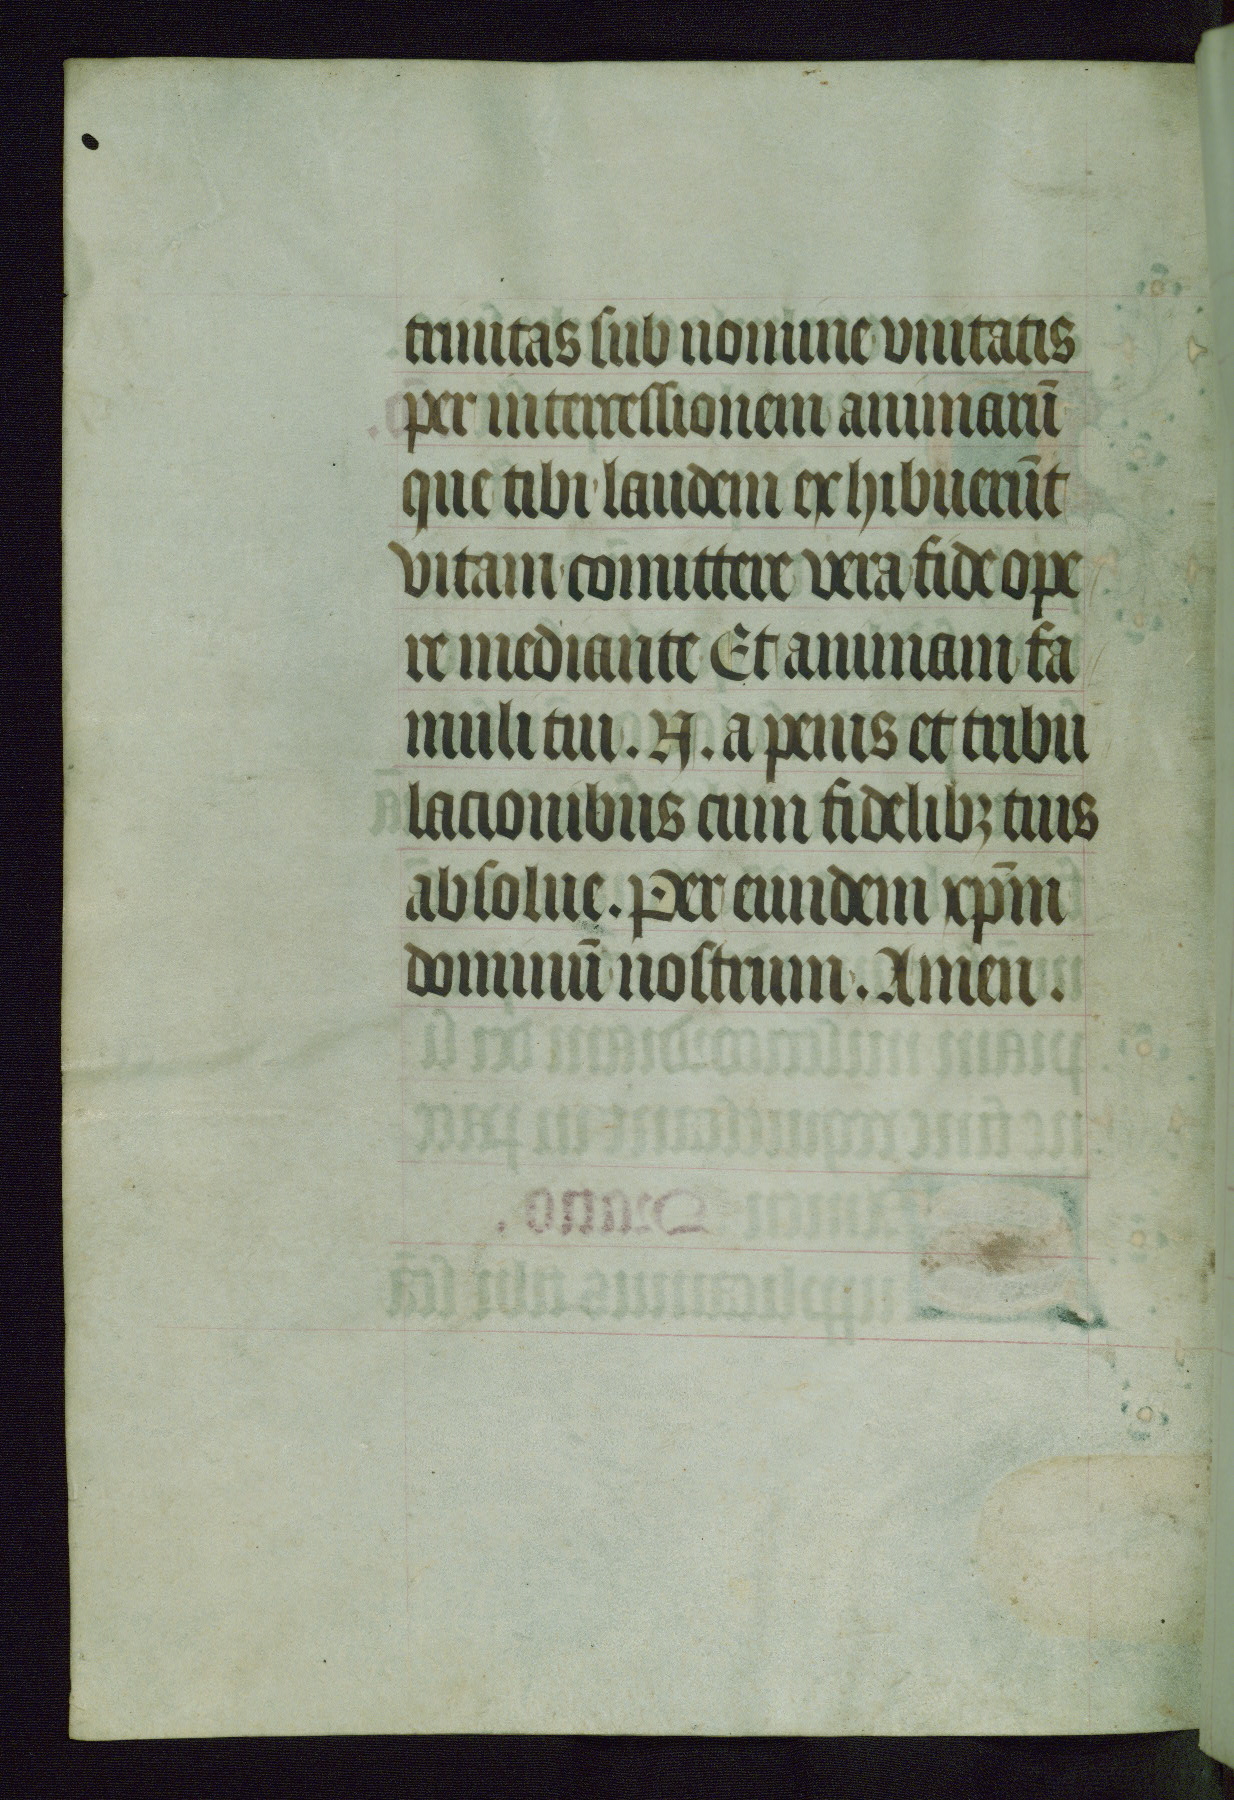 trinitas sub nomine vnitatis
per intercessionem animarū
que tibi laudem exhibuerūt
vitam cōmittere vera fide ope
re mediante Et animam fa
muli tui . N . a penis et tribu
lacionibus cum fidelibꝫ tuis
absolue . Per eundem xp̄m
dominū nostrum . Amen .